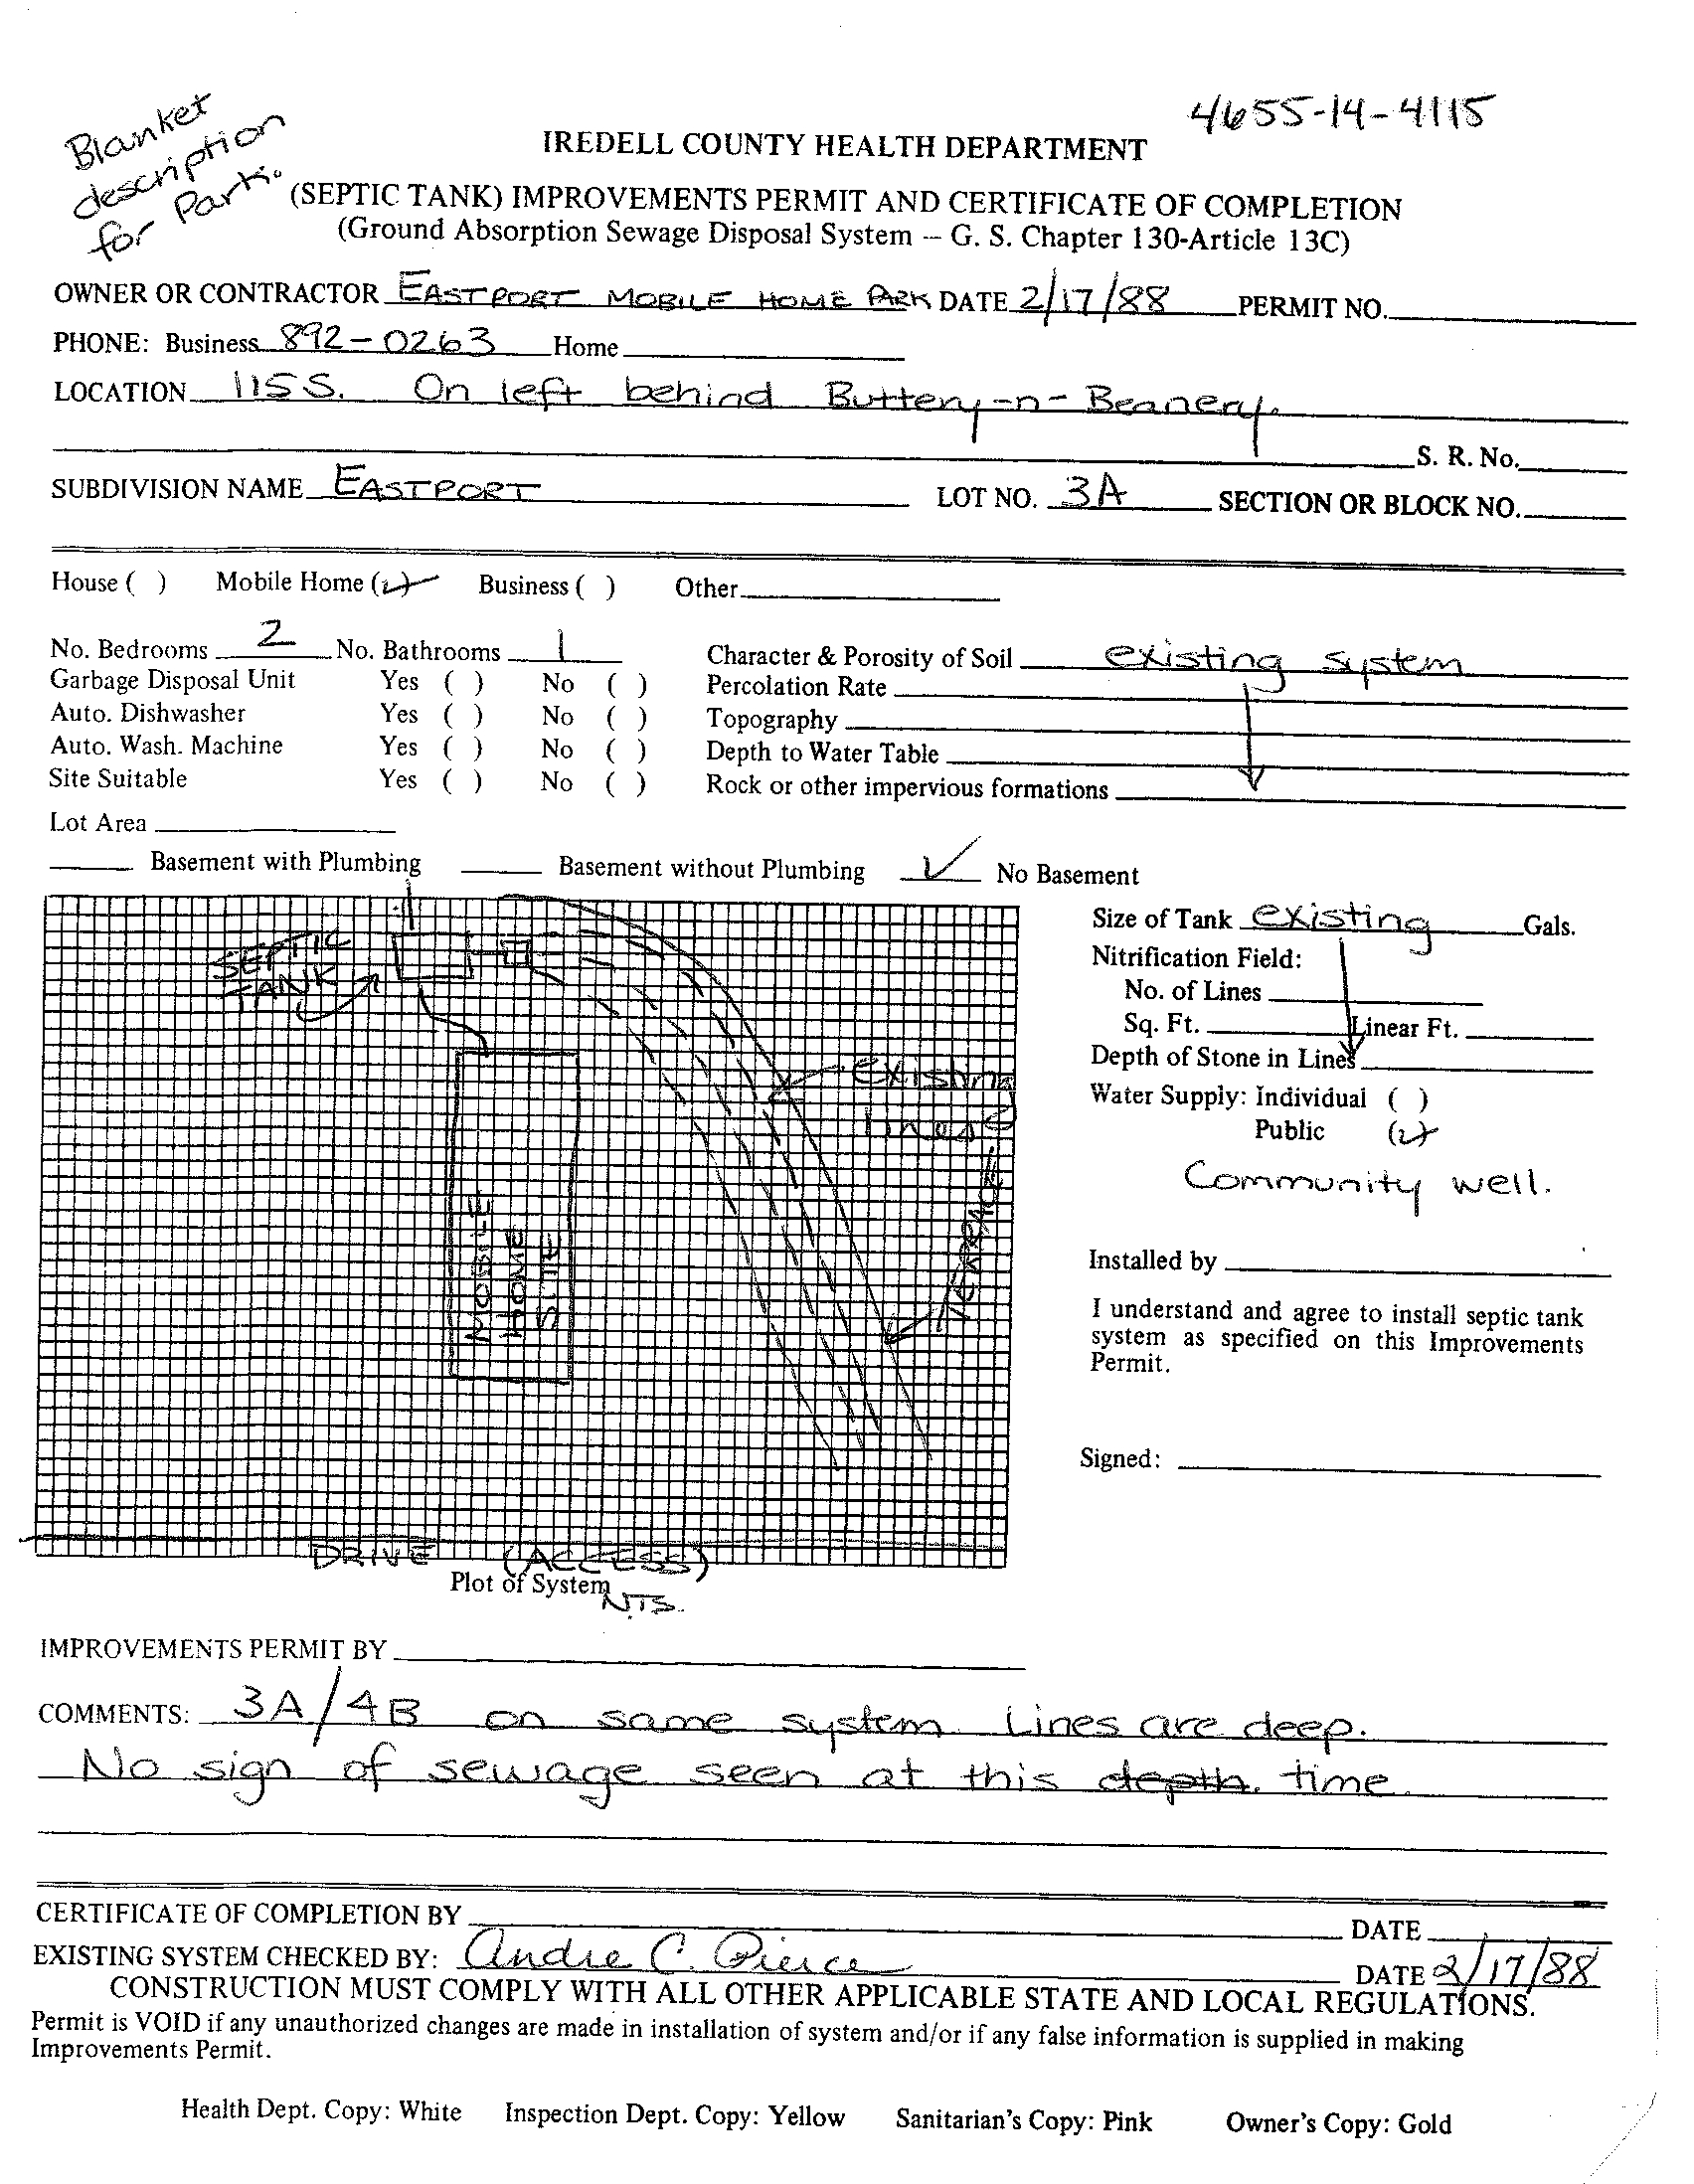 Blanket
description
for Park.
4655-14-4115
IREDELL COUNTY HEALTH DEPARTMENT
(SEPTIC TANK) IMPROVEMENTS PERMIT AND CERTIFICATE OF COMPLETION
(Ground Absorption Sewage Disposal System -- G. S. Chapter 130-Article 13C)
OWNER OR CONTRACTOR EASTPORT MOBILE HOME PARK DATE 2/17/88 PERMIT NO.
PHONE: Business 892-0263 Home
LOCATION 115 S. On left behind Buttery-n-Beanery.
S. R. No.
SUBDIVISION NAME EASTPORT LOT NO. 3A SECTION OR BLOCK NO.
House ( ) Mobile Home (✓) Business ( ) Other
No. Bedrooms 2 No. Bathrooms 1 Character & Porosity of Soil existing system
Garbage Disposal Unit Yes ( ) No ( ) Percolation Rate
Auto. Dishwasher Yes ( ) No ( ) Topography
Auto. Wash. Machine Yes ( ) No ( ) Depth to Water Table
Site Suitable Yes ( ) No ( ) Rock or other impervious formations
Lot Area
Basement with Plumbing Basement without Plumbing ✓ No Basement
SEPTIC
TANK
existing
lines
TERRACE
MOBILE
HOME
SITE
DRIVE (ACCESS)
Plot of System
NTS.
Size of Tank existing Gals.
Nitrification Field:
No. of Lines
Sq. Ft. Linear Ft.
Depth of Stone in Lines
Water Supply: Individual ( )
Public (✓)
Community well.
Installed by
I understand and agree to install septic tank
system as specified on this Improvements
Permit.
Signed:
IMPROVEMENTS PERMIT BY
COMMENTS: 3A/4B on same system. Lines are deep.
No sign of sewage seen at this depth. time.
CERTIFICATE OF COMPLETION BY DATE
EXISTING SYSTEM CHECKED BY: Andre C. Pierce DATE 2/17/88
CONSTRUCTION MUST COMPLY WITH ALL OTHER APPLICABLE STATE AND LOCAL REGULATIONS.
Permit is VOID if any unauthorized changes are made in installation of system and/or if any false information is supplied in making
Improvements Permit.
Health Dept. Copy: White Inspection Dept. Copy: Yellow Sanitarian's Copy: Pink Owner's Copy: Gold